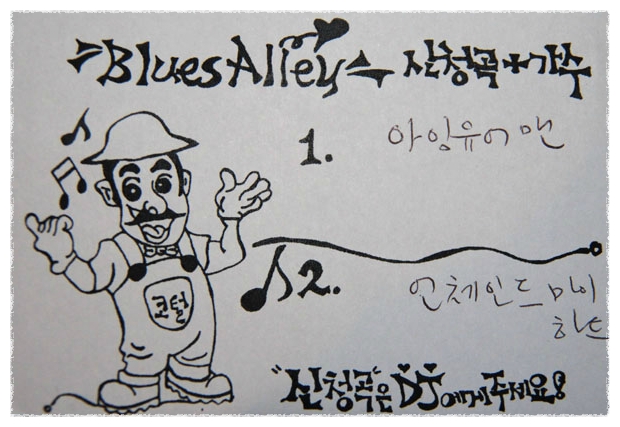 Blues Alley 신청곡+가수
1. 아임유어맨
2. 언체인드 마이
하트
코털
"신청곡"은 DJ에게 주세요!